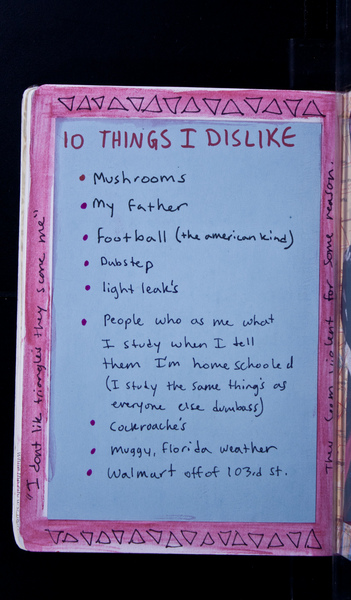 10 THINGS I DISLIKE
Mushrooms
My Father
Football (the american kind)
Dubstep
light leak's
People who as me what
I study when I tell
them I'm home schooled
(I study the same thing's as
everyone else dumbass)
Cockroache's
Muggy, Florida weather
Walmart off of 103rd st.
"I dont like triangles they scare me"
They seem violent for some reason.